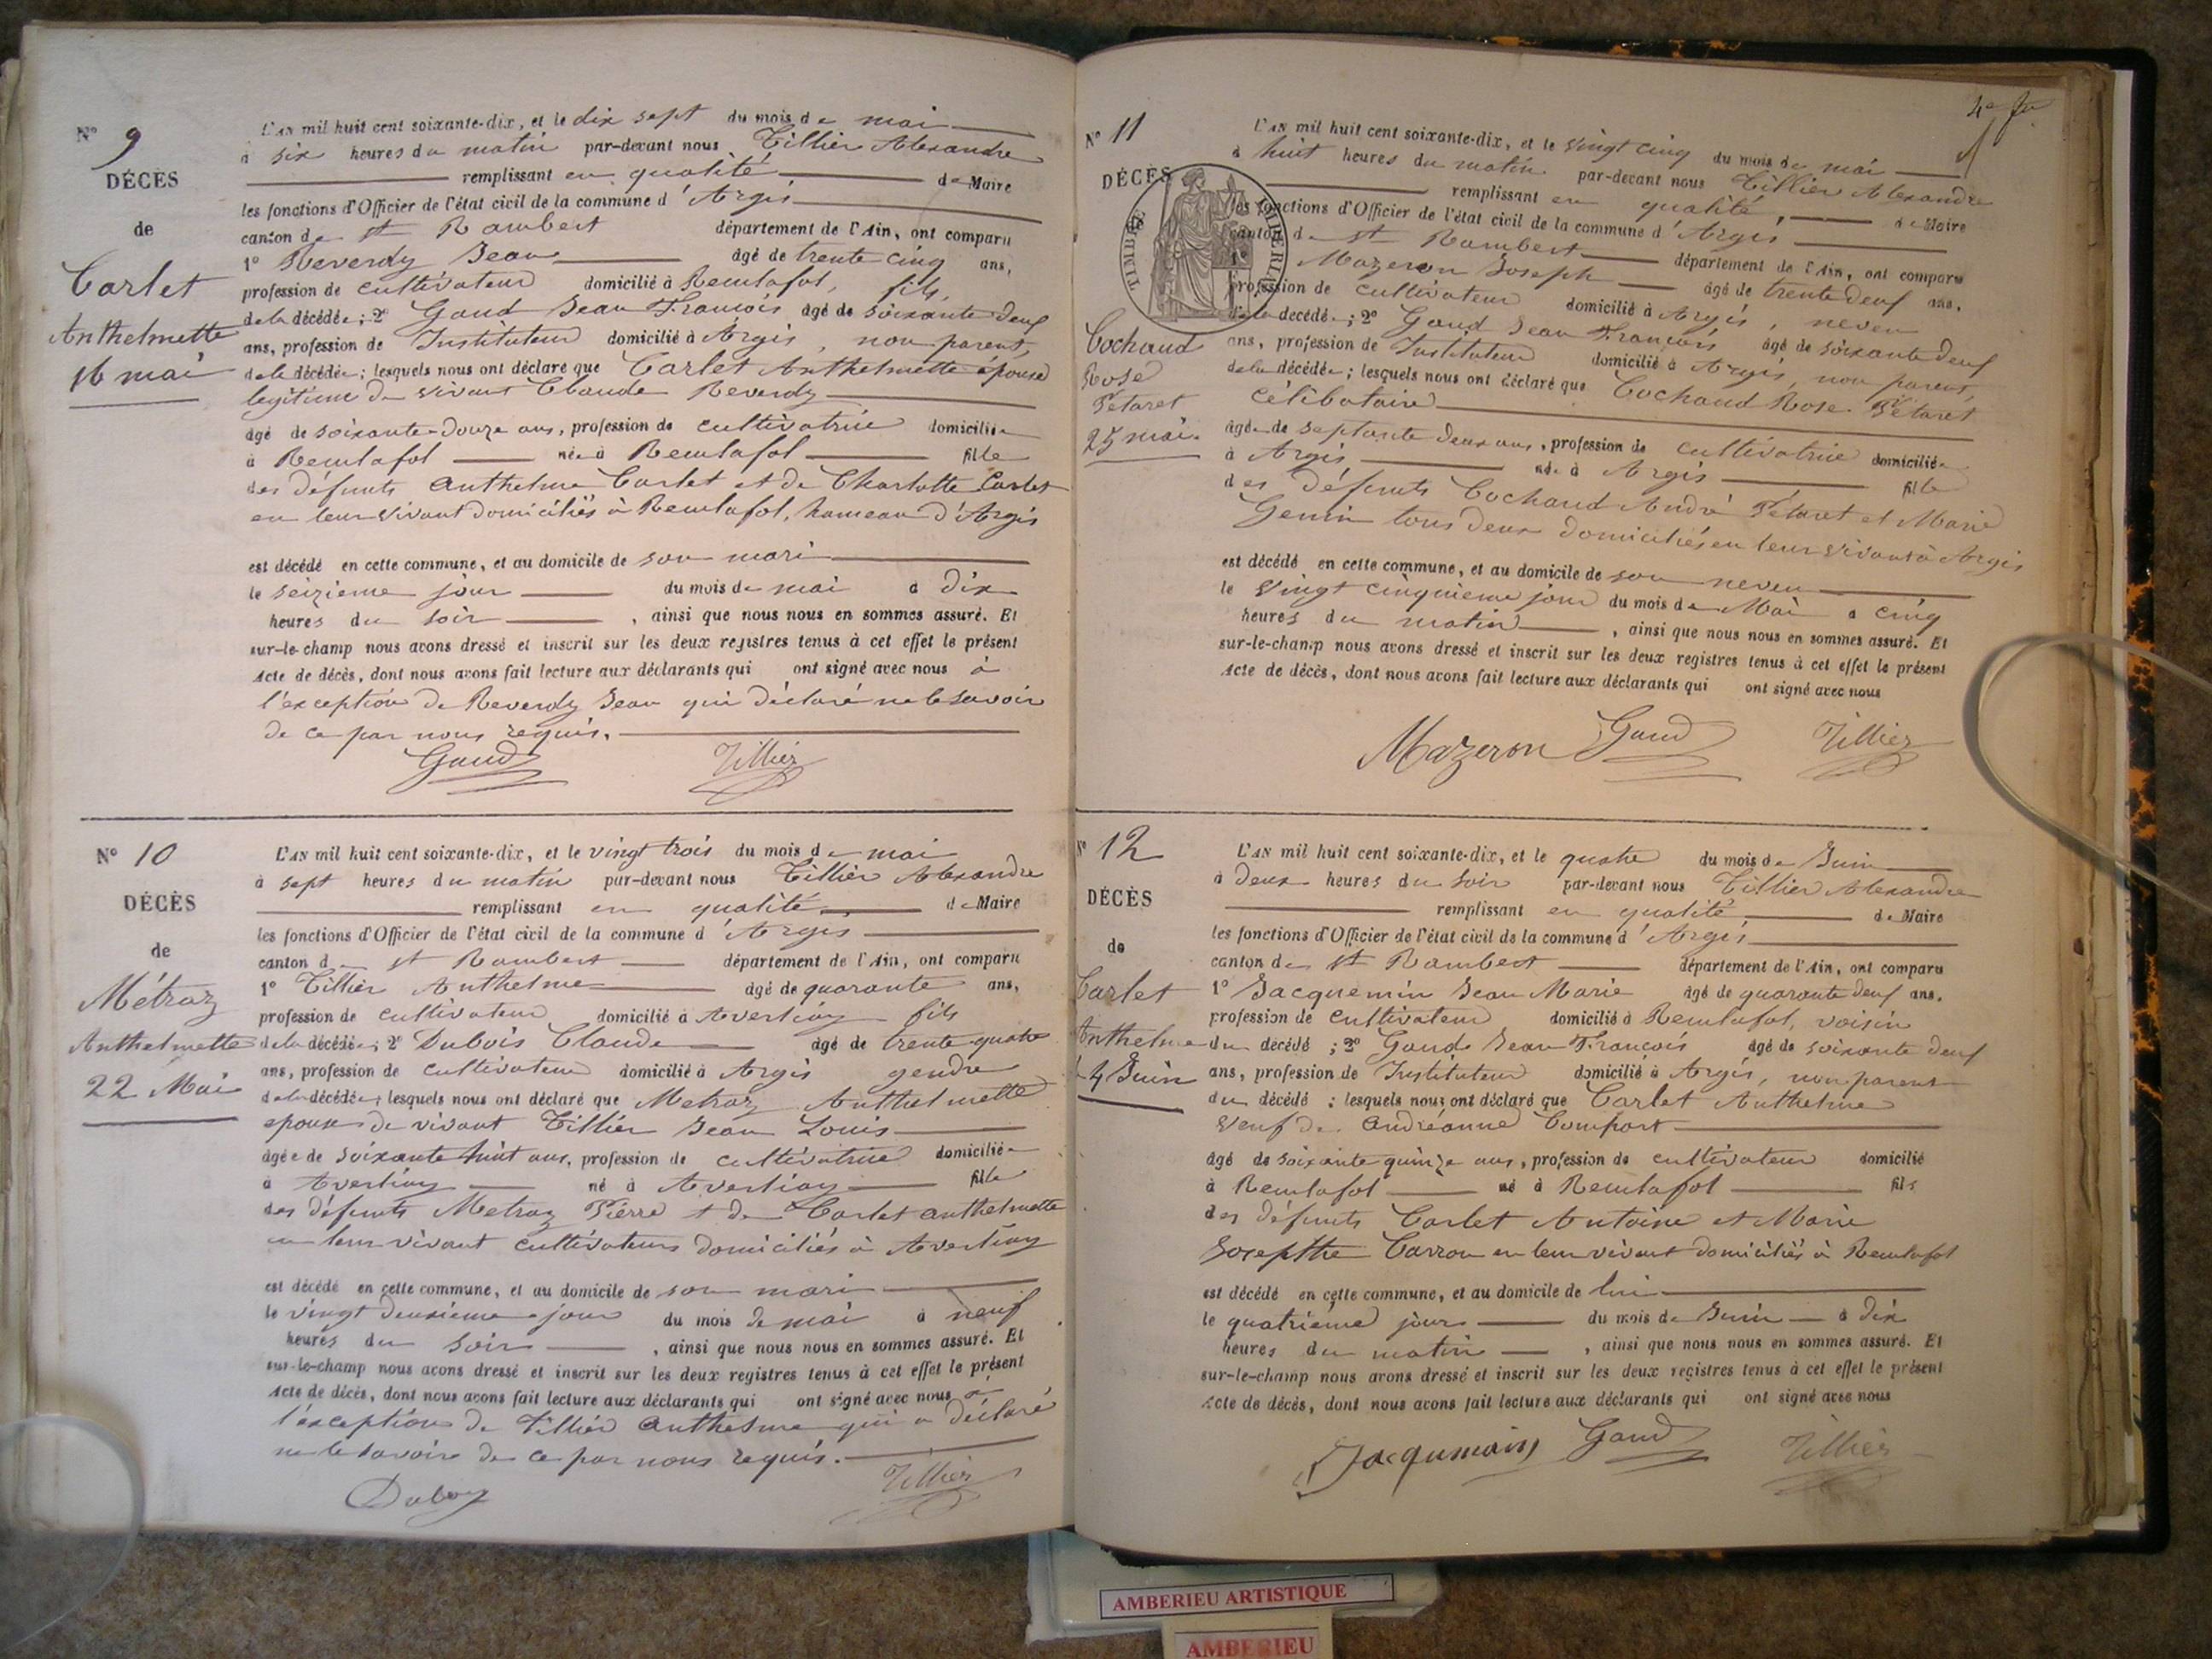 N° 9
DÉCÈS
de
Carlet
Anthelmette
16 mai
L'AN mil huit cent soixante-dix, et le dix sept du mois de mai
à six heures du matin par-devant nous Tillier Alexandre
remplissant en qualité de Maire
les fonctions d'Officier de l'état civil de la commune d'Argis
canton de St Rambert département de l'Ain, ont comparu
1° Reverdy Jean âgé de trente cinq ans,
profession de cultivateur domicilié à Reculafol, fils,
de la décédée ; 2° Gaud Jean François âgé de soixante deuf
ans, profession de Instituteur domicilié à Argis, non parent,
de la décédée ; lesquels nous ont déclaré que Carlet Anthelmette épouse
légitime de vivant Claude Reverdy
âgé de soixante-douze ans, profession de cultivatrice domiciliée
à Reculafol née à Reculafol fille
des défunts Anthelme Carlet et de Charlotte Carlet
en leur vivant domiciliés à Reculafol, hameau d'Argis
est décédé en cette commune, et au domicile de son mari
le seizième jour du mois de mai à dix
heures du soir, ainsi que nous nous en sommes assuré. Et
sur-le-champ nous avons dressé et inscrit sur les deux registres tenus à cet effet le présent
Acte de décès, dont nous avons fait lecture aux déclarants qui ont signé avec nous à
l'exception de Reverdy Jean qui déclaré ne le savoir
de ce par nous requis.
Gaud Tillier
N° 10
DÉCÈS
de
Métraz
Anthelmette
22 Mai
L'AN mil huit cent soixante-dix, et le vingt trois du mois de mai
à sept heures du matin par-devant nous Tillier Alexandre
remplissant en qualité de Maire
les fonctions d'Officier de l'état civil de la commune d'Argis
canton de St Rambert département de l'Ain, ont comparu
1° Tillier Anthelme âgé de quarante ans,
profession de cultivateur domicilié à Averliaz fils
de la décédée ; 2° Dubois Claude âgé de trente-quatre
ans, profession de cultivateur domicilié à Argis gendre
de la décédée ; lesquels nous ont déclaré que Metraz Anthelmette
épouse de vivant Tillier Jean Louis
âgée de soixante huit ans, profession de cultivatrice domiciliée
à Averliaz né à Averliaz fille
des défunts Metraz Pierre et de Carlet Anthelmette
en leur vivant cultivateurs domiciliés à Averliaz
est décédé en cette commune, et au domicile de son mari
le vingt deuxième jour du mois de mai à neuf
heures du soir, ainsi que nous nous en sommes assuré. Et
sur-le-champ nous avons dressé et inscrit sur les deux registres tenus à cet effet le présent
Acte de décès, dont nous avons fait lecture aux déclarants qui ont signé avec nous à
l'exception de Tillier Anthelme qui a déclaré
ne le savoir de ce par nous requis.
Duboy Tillier
4e
N° 11
DÉCÈS
TIMBRE IMPERIAL
Cochaud
Rose
Pétaret
25 mai
L'AN mil huit cent soixante-dix, et le vingt cinq du mois de mai
à huit heures du matin par-devant nous Tillier Alexandre
remplissant en qualité, de Maire
les fonctions d'Officier de l'état civil de la commune d'Argis
canton de St Rambert département de l'Ain, ont comparu
1° Mazeron Joseph âgé de trente deuf ans,
profession de cultivateur domicilié à Argis, neveu
de la decédé ; 2° Gaud Jean François âgé de soixante deuf
ans, profession de Instituteur domicilié à Argis, non parent,
de la décédée ; lesquels nous ont déclaré que Cochaud Rose Pétaret
célibataire
âgée de septante deux ans, profession de cultivatrice domiciliée
à Argis née à Argis fille
des défunts Cochaud André Pétaret et Marie
Genin tous deux domiciliés en leur vivant à Argis
est décédé en cette commune, et au domicile de son neveu
le vingt cinquième jour du mois de Mai à cinq
heures du matin, ainsi que nous nous en sommes assuré. Et
sur-le-champ nous avons dressé et inscrit sur les deux registres tenus à cet effet le présent
Acte de décès, dont nous avons fait lecture aux déclarants qui ont signé avec nous
Mazeron Gaud Tillier
N° 12
DÉCÈS
de
Carlet
Anthelme
4 Juin
L'AN mil huit cent soixante-dix, et le quatre du mois de Juin
à deux heures du soir par-devant nous Tillier Alexandre
remplissant en qualité de Maire
les fonctions d'Officier de l'état civil de la commune d'Argis
canton de St Rambert département de l'Ain, ont comparu
1° Jacquemin Jean Marie âgé de quarante deuf ans,
profession de cultivateur domicilié à Reculafol, voisin
du décédé ; 2° Gaude Jean François âgé de soixante deuf
ans, profession de Instituteur domicilié à Argis, non parent
du décédé ; lesquels nous ont déclaré que Carlet Anthelme
veuf de Andréanne Compart
âgé de soixante quinze ans, profession de cultivateur domicilié
à Reculafol né à Reculafol fils
des défunts Carlet Antoine et Marie
Josephthe Carron en leur vivant domiciliés à Reculafol
est décédé en cette commune, et au domicile de lui
le quatrième jour du mois de Juin à dix
heures du matin, ainsi que nous nous en sommes assuré. Et
sur-le-champ nous avons dressé et inscrit sur les deux registres tenus à cet effet le présent
Acte de décès, dont nous avons fait lecture aux déclarants qui ont signé avec nous
Jacqumain Gaud Tillier
AMBERIEU ARTISTIQUE
AMBERIEU